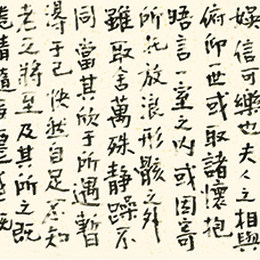 娛信可樂也夫人之相與
俯仰一世或取諸懷抱
悟言一室之內或因寄
所託放浪形骸之外
雖取舍萬殊靜躁不
同當其欣于所遇暫
得于己快然自足不知
老之將至及其所之既
情隨